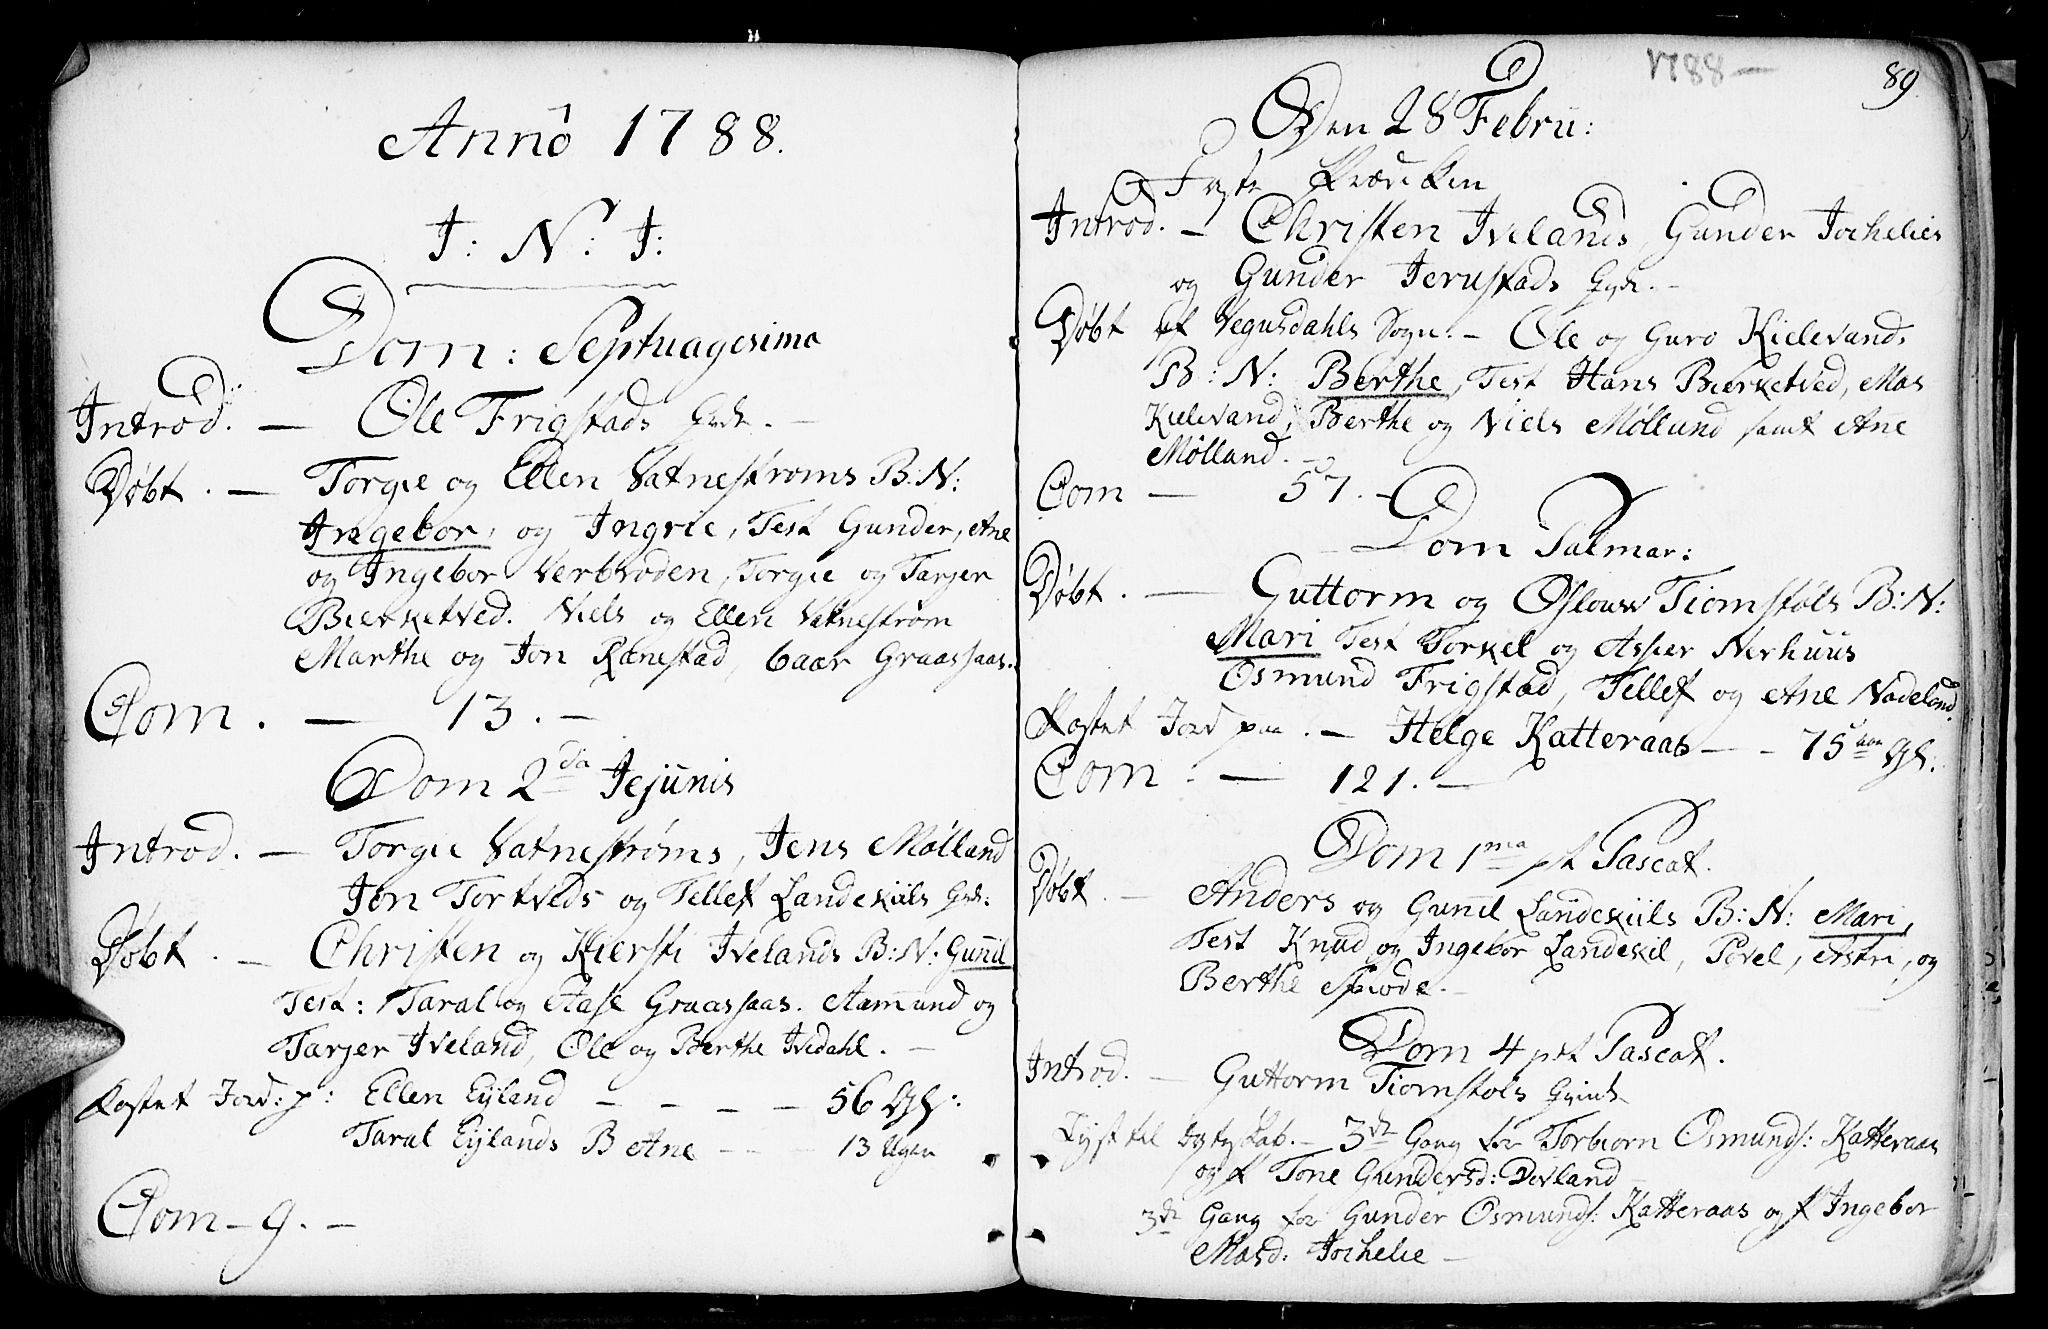 Anno 1788.
J: N: J:
Dom: Septuagesima
Introd. — Ole Frigstads
Døbt. — Torgie og Ellen Vatnestroms B: N:
Ingebor, og Ingrie, Test Gunder, Ane
og Ingebor Verbroden, Torgie og Tarjer
Bierketved. Niels og Ellen Vatnestrøm
Marthe og Jon Rænestad, Baar Graassaas.
Com. — 13. —
Dom 2da Jejunis
Introd. — Torgie Vatnestrøms, Jens Mølland
Jon Tortveds og Tellef Landeskiils
Døbt. — Christen og Kiersti Ivelands B: N: Gunnil
Test: Taral og Aase Graassaas. Aamund og
Tarjer Iveland, Ole og Berthe Ivedahl. —
Kastet Jord: p: Ellen Eyland — — — — 56
Taral Eylands B Ane — — — 13 Uger
Com — 9. —
1788 —
89
Den 28 Febru:
Faste Prædiken
Introd. — Christen Ivelands, Gunder Jorhelies
og Gunder Jerustads
Døbt af Vegusdahls Sogn. — Ole og Guro Kielevands
B: N: Berthe, Test Hans Bierketved, Mas
Kielevand, Berthe og Niels Møllund samt Ane
Mølland. —
Com — 57. —
Dom Palmar:
Døbt. — Guttorm og Oslow Tiomstøls B: N:
Mari Test Torkel og Asser Nerhuus
Osmund Frigstad, Tellef og Ane Nadeland.
Kastet Jord paa. — Helge Katteraas — — 75 aar
Com. — 121. —
Dom 1ma pt Pascat.
Døbt. — Anders og Gunil Landeskiils B: N: Mari,
Test Knud og Ingebor Landeskil, Povel, Astri, og
Berthe
Dom 4 pst Pascat.
Introd. — Guttorm Tiomstols
Lyst til — 3de Gang for Torbiorn Osmunds: Katteraas
og f Tone Gundersd: Dovland —
3de Gang for Gunder Osmunds: Katteraas og f Ingebor
Masd: Jorhelie —